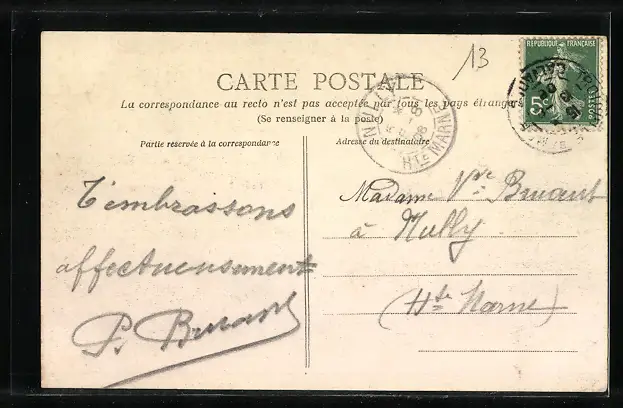 13
REPUBLIQUE FRANÇAISE
POSTES
5c
CARTE POSTALE
La correspondance au recto n'est pas acceptée par tous les pays étrangers
(Se renseigner à la poste)
HTE MARNE
Partie reservée à la correspondance
Adresse du destinataire
T'embrassons
affectueusement
P. Bruant
Madame Vve Bruant
à Nully
(Hte Marne)